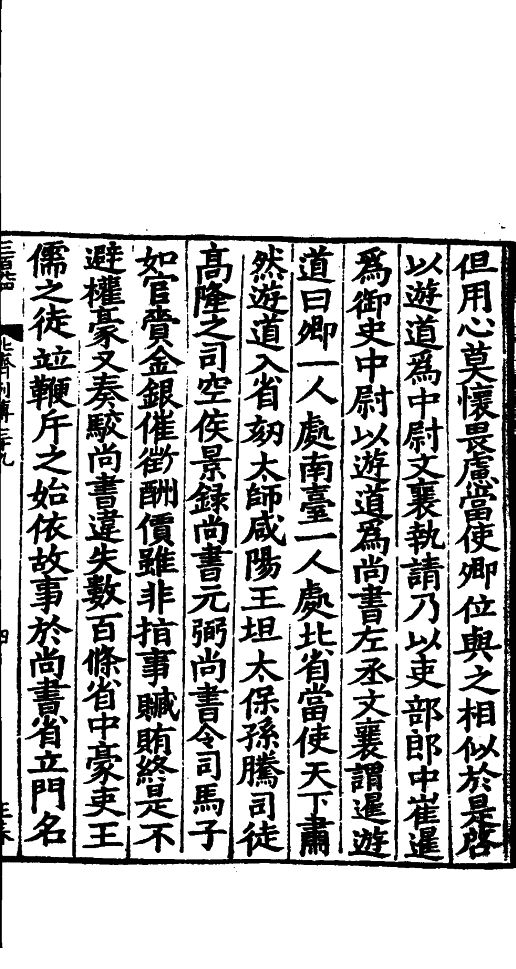 但用心莫懷畏慮當使卿位與之相似於是啓
以遊道爲中尉文襄執請乃以吏部郎中崔暹
爲御史中尉以遊道爲尚書左丞文襄謂暹遊
道曰卿一人處南臺一人處北省當使天下肅
然遊道入省劾太師咸陽王坦太保孫騰司徒
高隆之司空侯景録尚書元弼尚書令司馬子
如官賚金銀催徵酬價雖非指事贓賄終是不
避權豪又奏駮尚書違失數百條省中豪吏王
儒之徒竝鞭斥之始依故事於尚書省立門名
北齊列傳三十九
四